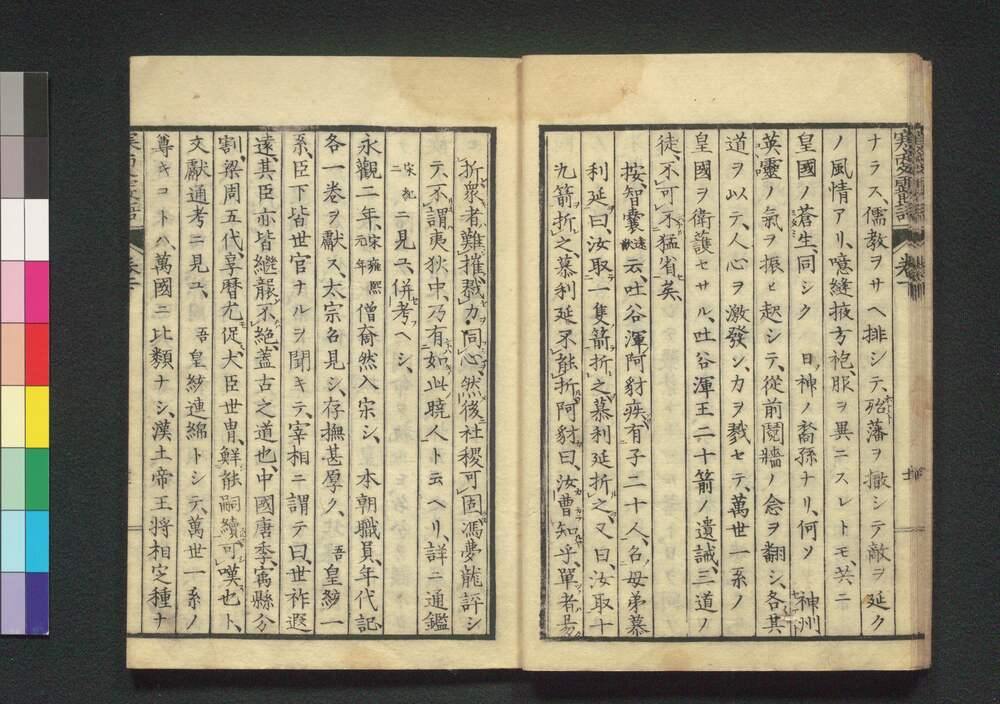 ナラス、儒教ヲサヘ排シテ、殆藩ヲ撤シテ敵ヲ延ク
ノ風情アリ、噫縫掖方袍、服ヲ異ニスレトモ、共ニ
皇國ノ蒼生、同シク 日神ノ裔孫ナリ、何ソ 神州
英靈ノ氣ヲ振ヒ起シテ、從前鬩牆ノ念ヲ翻シ、各其
道ヲ以テ、人心ヲ激發シ、力ヲ戮セテ、萬世一系ノ
皇國ヲ衛護セサル、吐谷渾王二十箭ノ遺誡、三道ノ
徒、不可不猛省矣、
按智囊 云、吐谷渾阿豺疾、有子二十人、名母弟慕
利延曰、汝取一隻箭折之、慕利延折之、又曰、汝取十
九箭折之、慕利延不能折、阿豺曰、汝曹知乎、單者易
折、衆者難摧、戮力同心、然後社稷可固、馮夢龍評シ
テ、不謂夷狄中、乃有如此曉人ト云ヘリ、詳ニ通鑑
宋紀二ニ見ユ、併考ヘシ、
永觀二年、宋雍熙元年 僧奝然入宋シ、本朝職員、年代記
各一卷ヲ獻ス、太宗召見シ、存撫甚厚ク、 吾皇統一
系、臣下皆世官ナルヲ聞キテ、宰相ニ謂テ曰、世祚遐
遠、其臣亦皆繼襲不絶、蓋古之道也、中國唐季、寓縣分
割、梁周五代、享曆尤促、大臣世冑、鮮能嗣續、可嘆也ト、
文獻通考ニ見ユ、 吾皇統連綿トシテ、萬世一系ノ
尊キコトハ、萬國ニ比類ナシ、漢土帝王將相定種ナ